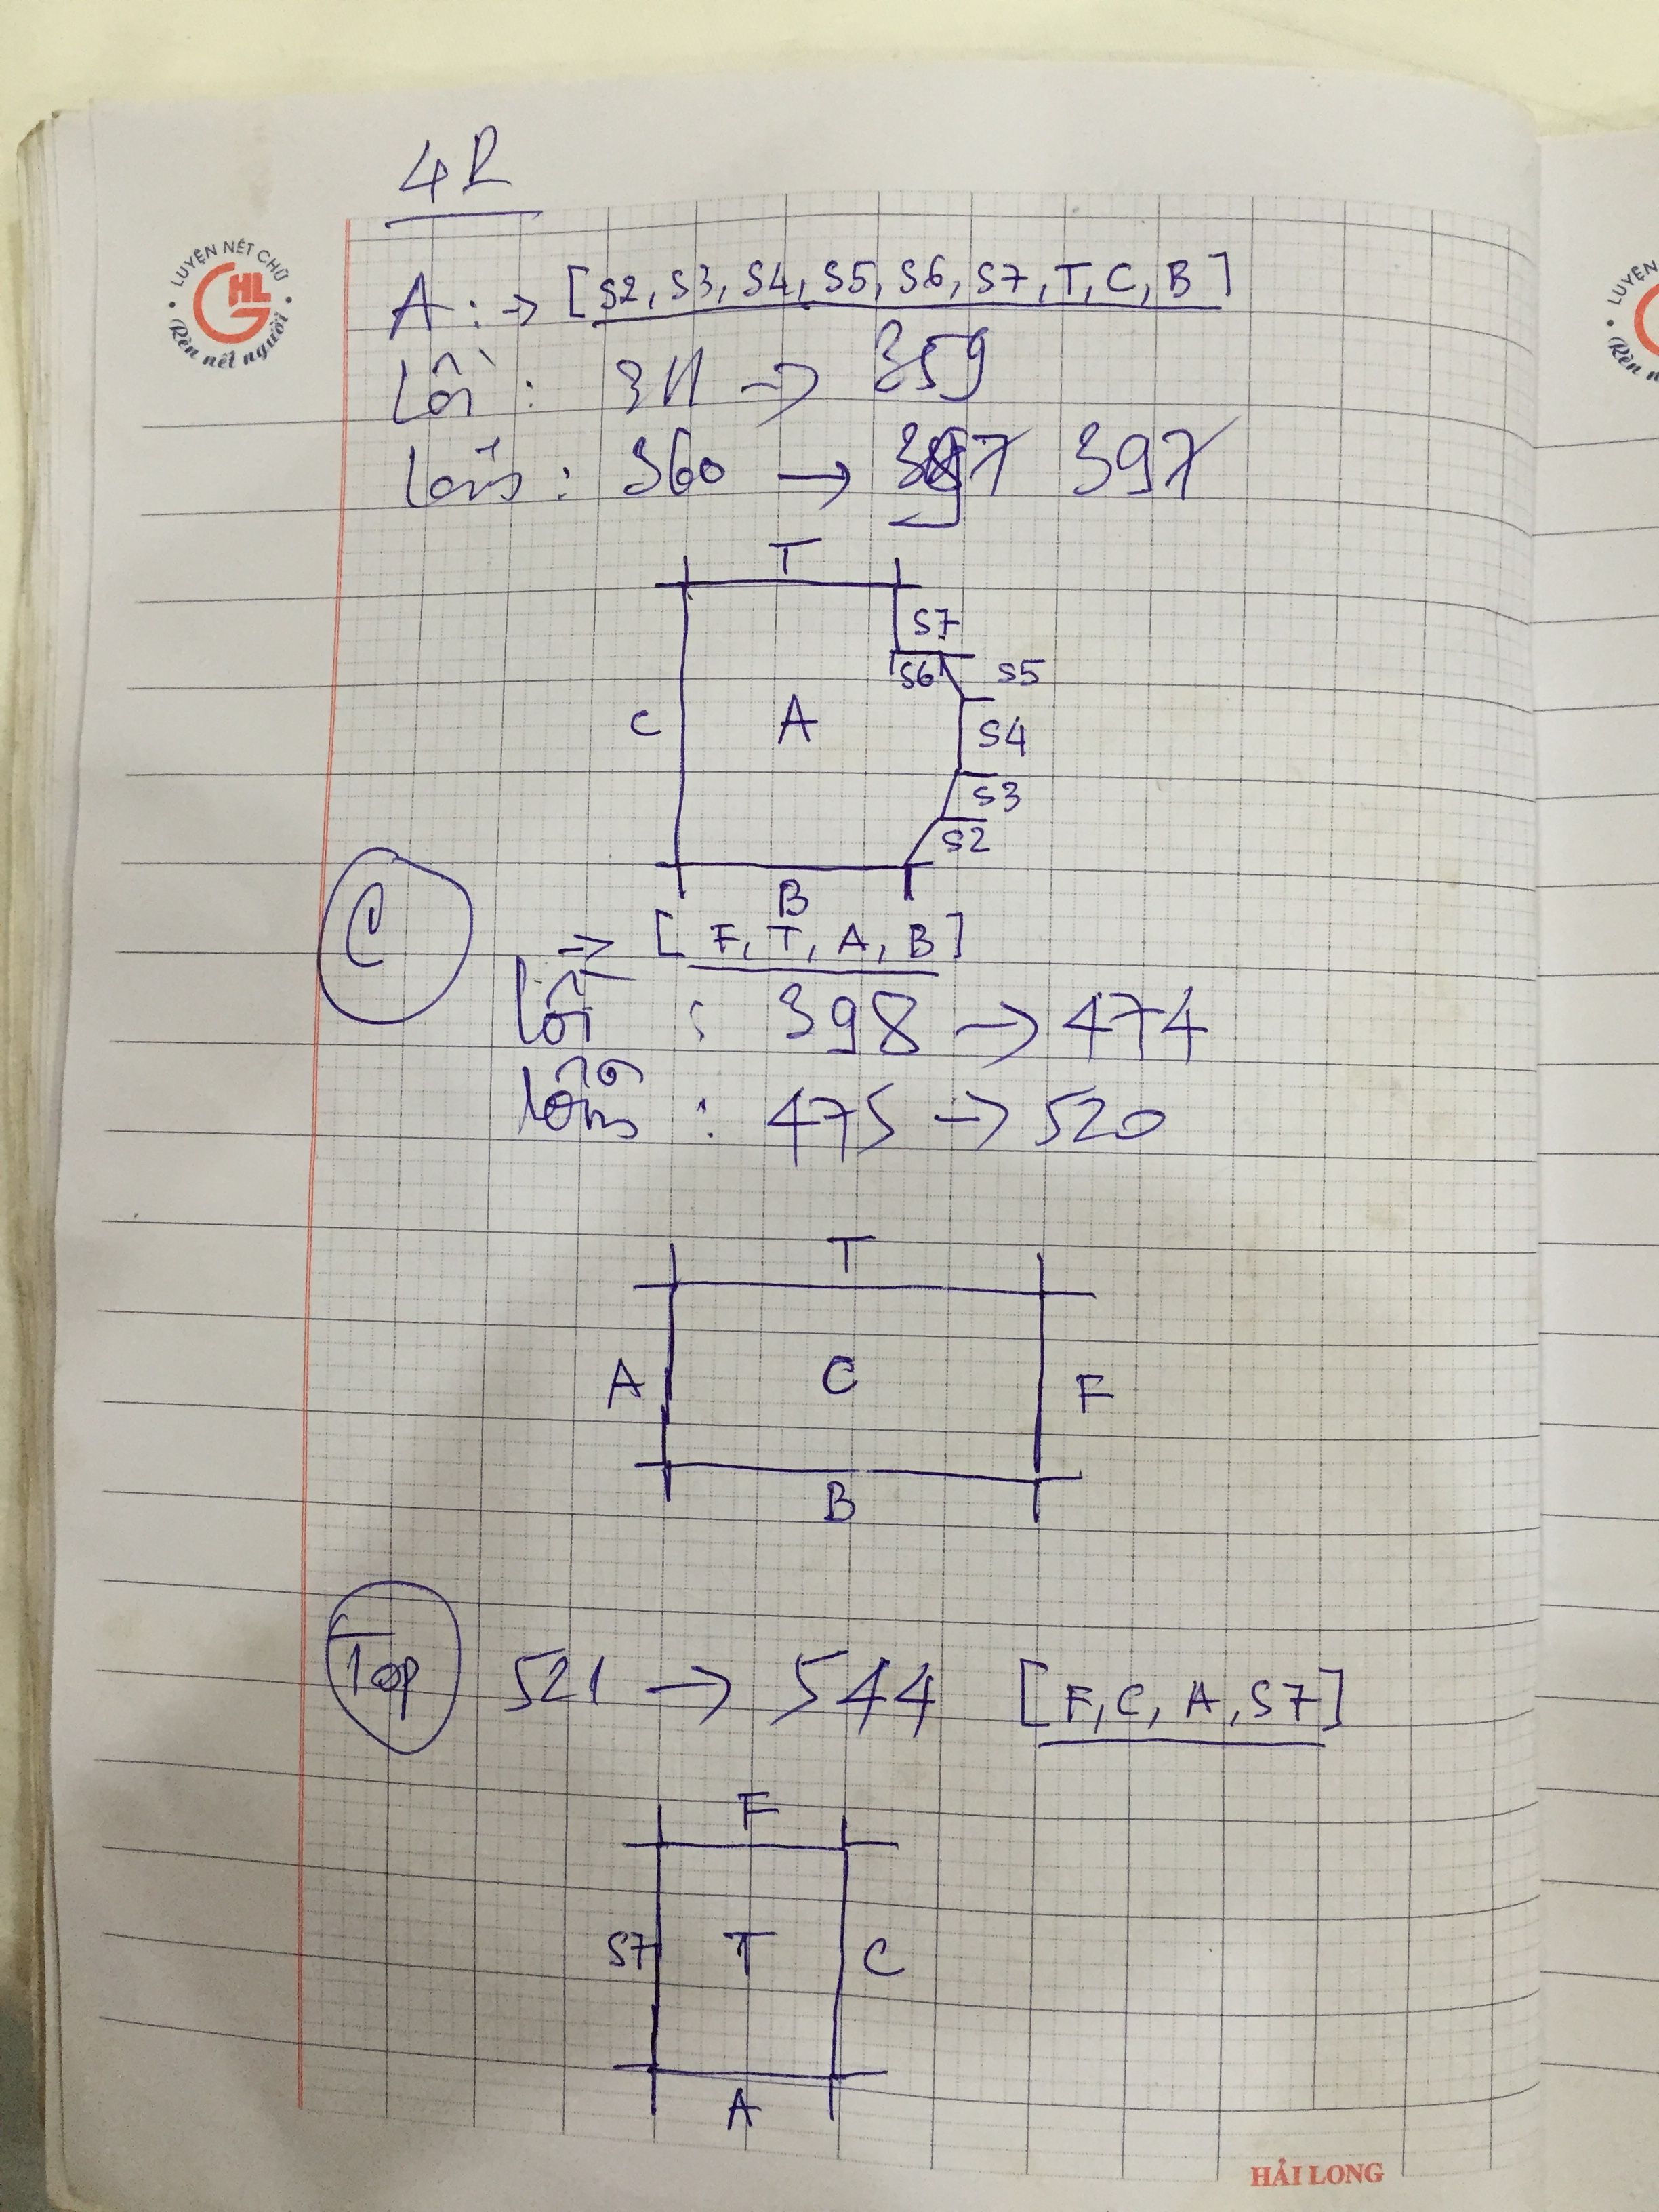 4R
LUYỆN NÉT CHỮ
HL
Rèn nết người
A: → [S2, S3, S4, S5, S6, S7, T, C, B]
Lồi : 311 → 359
Lõm : 360 → 397
T
S7
S6 S5
C A S4
S3
S2
B
C → [F, T, A, B]
lồi : 398 → 474
lõm : 475 → 520
T
A C F
B
Top 521 → 544 [F, C, A, S7]
F
S7 T C
A
HẢI LONG
LUYỆ
Rèn n